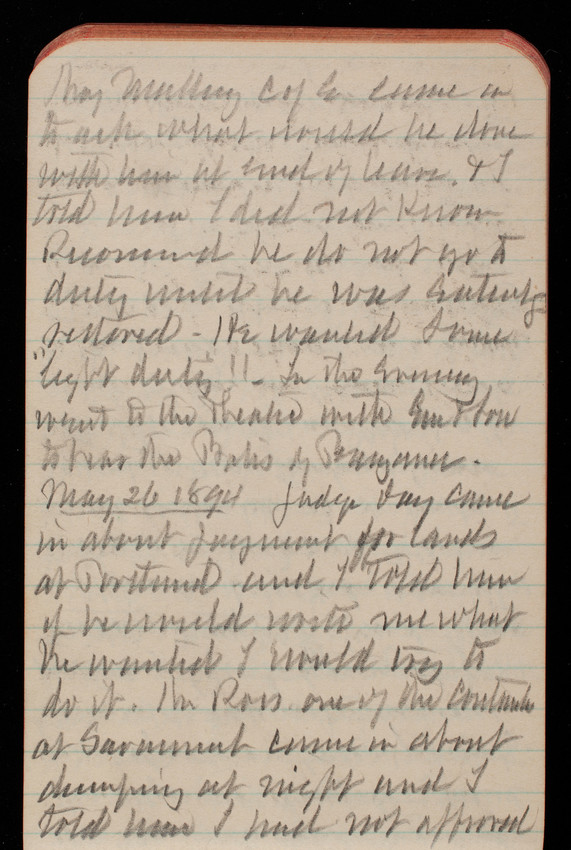 Maj Mallery C of E. came in
to ask what would be done
with him at end of leave. & I
told him I did not know
Recomend he do not go to
duty until he was entirely
restored - He wanted some
"light duty"!! - In the Evening
went to the theatre with Em &
to hear the of
May 26 1894 Judge Day came
in about payment for lands
at Portland and I told him
if he would write me what
he wanted I would try to
do it. Mr Ross one of the
at Savannah came in about
dumping at night and I
told him I had not approved